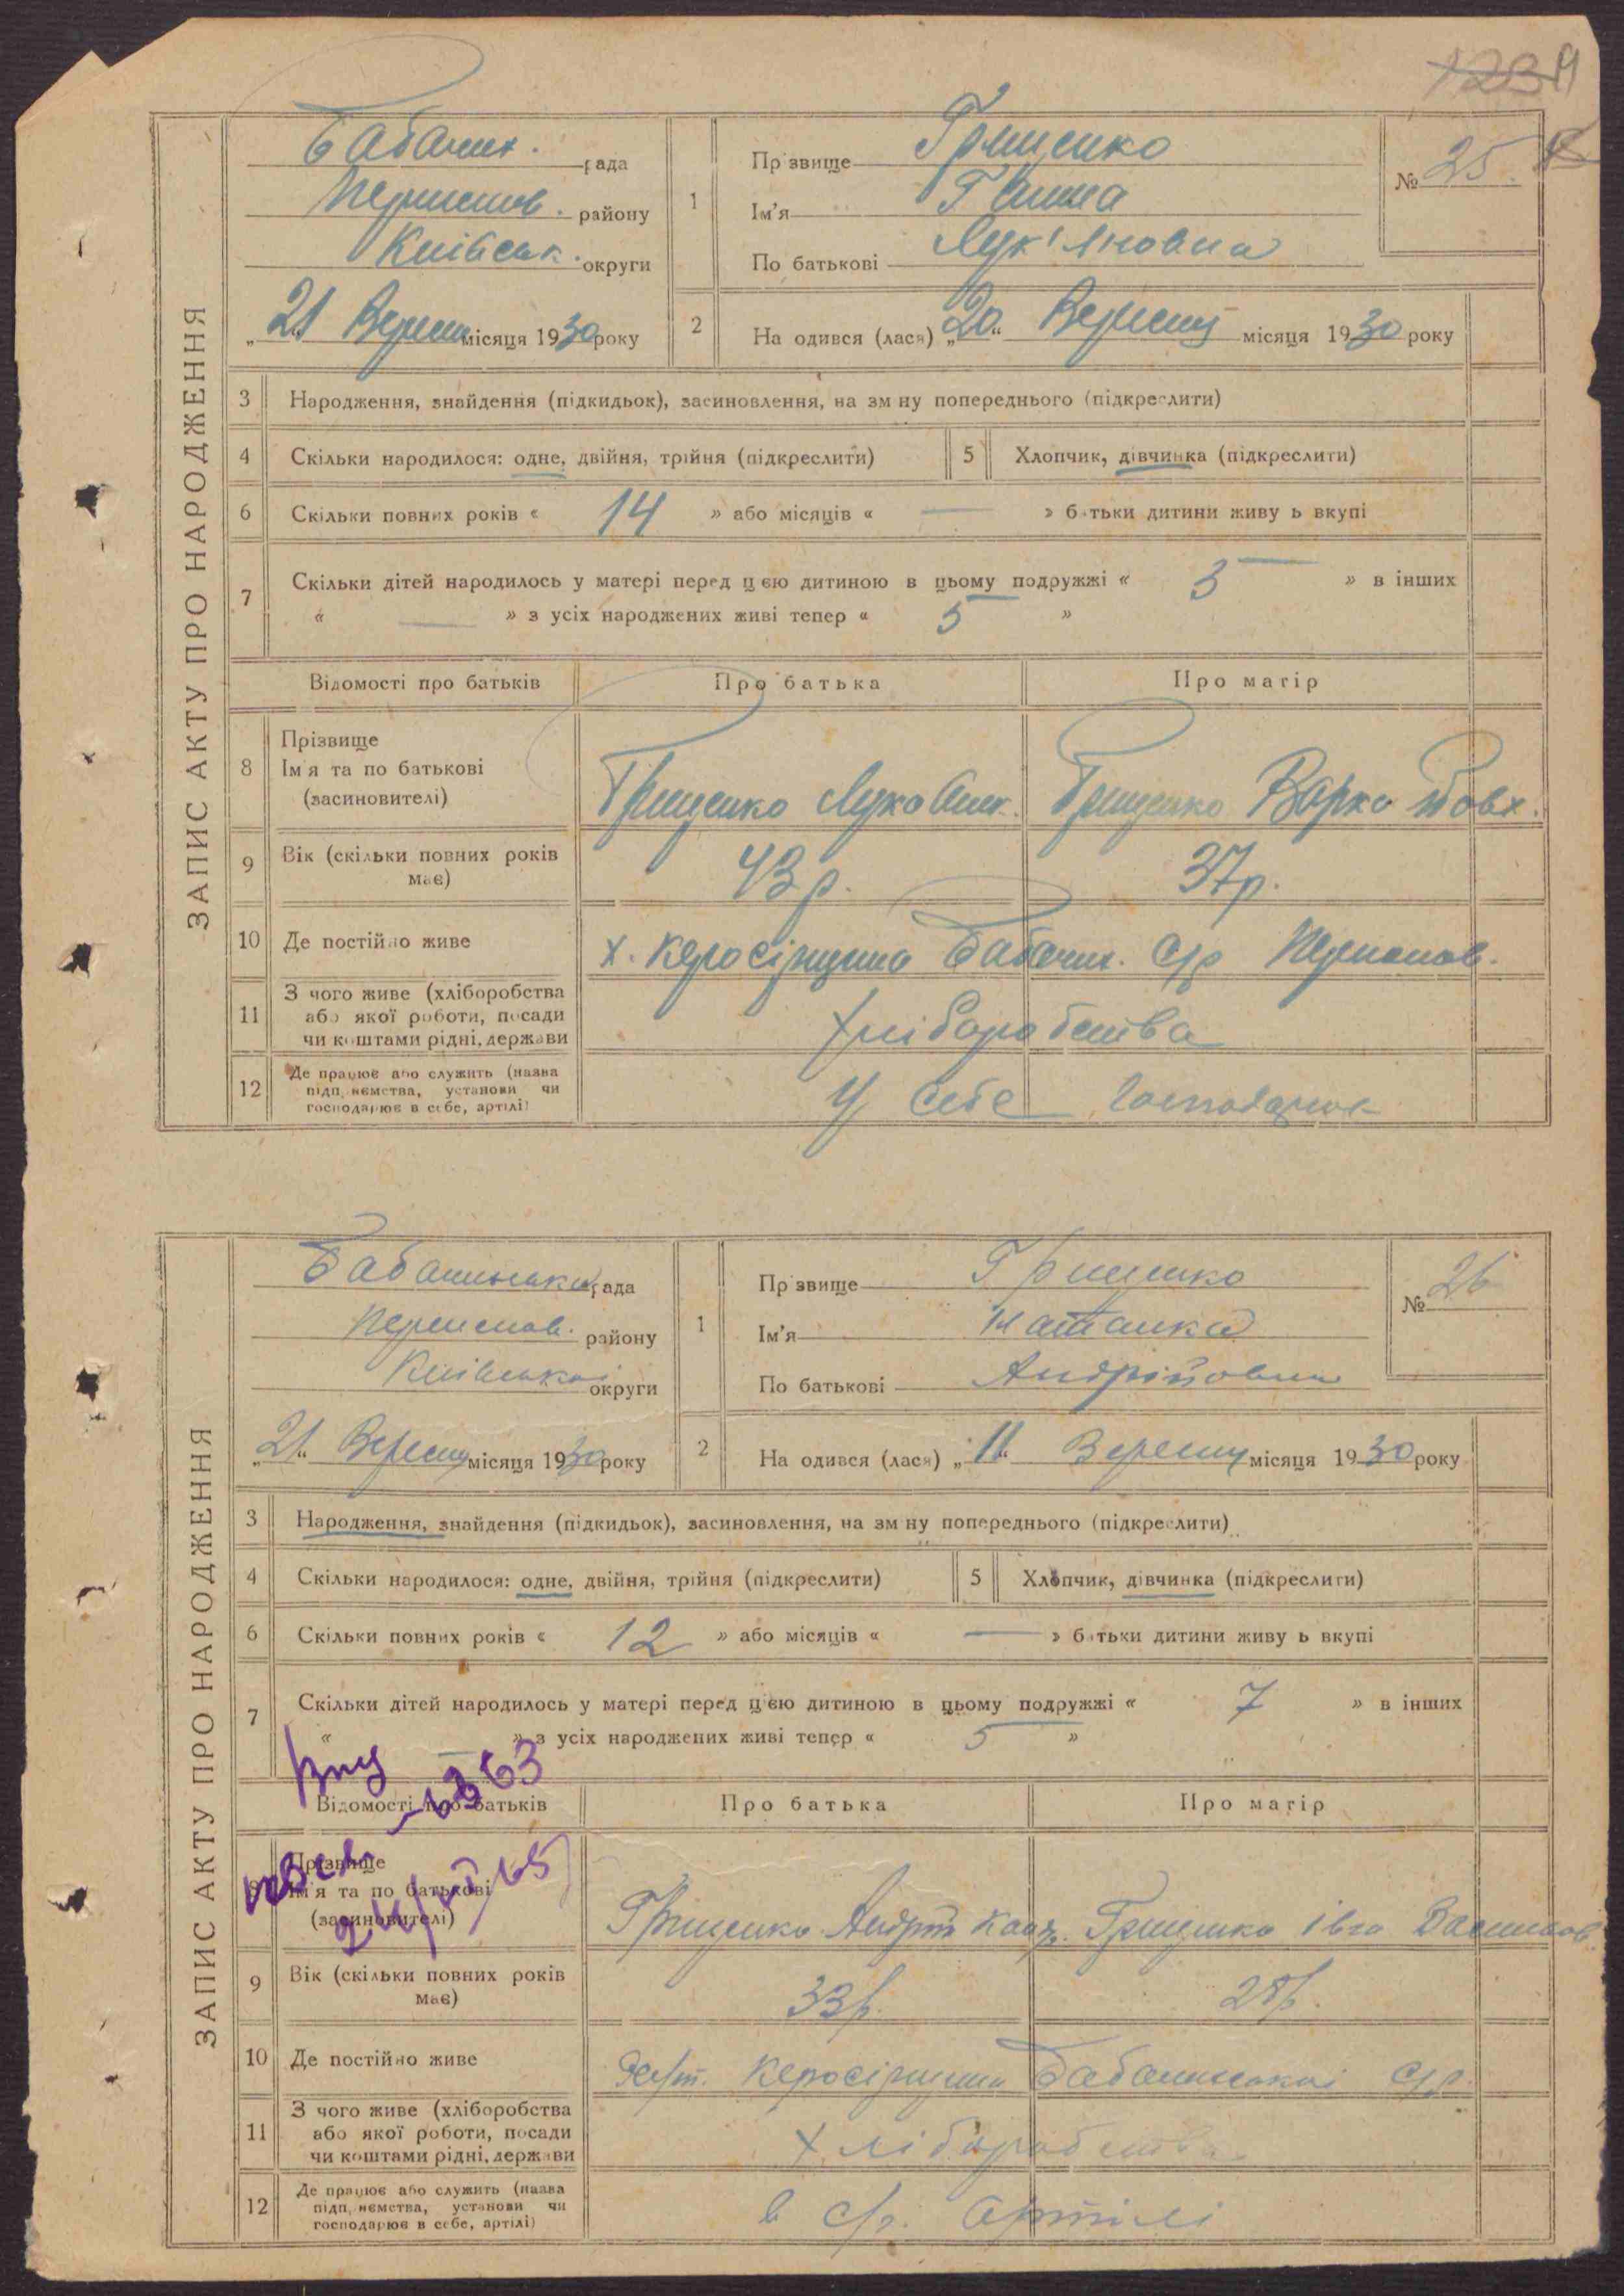 ЗАПИС АКТУ ПРО НАРОДЖЕННЯ
Бабачих. рада
району
Київськ. округи
„21“ Вересня місяця 1930 року
1
Прізвище Грищенко
Ім'я Ганна
По батькові Лук'яновна
№ 25.
2
На одився (лася) „20“ Вересня місяця 1930 року
3 Народження, знайдення (підкидьок), засиновлення, на зм ну попереднього (підкреслити)
4 Скільки народилося: одне, двійня, трійня (підкреслити)
5 Хлопчик, дівчинка (підкреслити)
6 Скільки повних років « 14 » або місяців « — » батьки дитини живу ь вкупі
7 Скільки дітей народилось у матері перед цією дитиною в цьому подружжі « 5 » в інших
« — » з усіх народжених живі тепер « 5 »
Відомості про батьків
Про батька
Про матір
8 Прізвище
Ім'я та по батькові
(засиновителі)
Грищенко Лука
Грищенко Варка
9 Вік (скільки повних років має)
43 р.
37 р.
10 Де постійно живе
х. Керосірщина с/р
11 З чого живе (хліборобства
або якої роботи, посади
чи коштами рідні, держави
хліборобства
12 Де працює або служить (назва
підп, немства, установи чи
господарює в себе, артілі)
У себе господарює
ЗАПИС АКТУ ПРО НАРОДЖЕННЯ
рада
району
Київської округи
„21“ Вересня місяця 1930 року
1
Прізвище Грищенко
Ім'я Наталка
По батькові Андрійовна
№ 26
2
На одився (лася) „11“ Вересня місяця 1930 року
3 Народження, знайдення (підкидьок), засиновлення, на зм ну попереднього (підкреслити)
4 Скільки народилося: одне, двійня, трійня (підкреслити)
5 Хлопчик, дівчинка (підкреслити)
6 Скільки повних років « 12 » або місяців « — » батьки дитини живу ь вкупі
7 Скільки дітей народилось у матері перед цією дитиною в цьому подружжі « 7 » в інших
« — » з усіх народжених живі тепер « 5 »
Відомості про батьків
Про батька
Про матір
Прізвище
Ім'я та по батькові
(засиновителі)
Грищенко Андрій
Грищенко Івга Василов.
9 Вік (скільки повних років має)
33 р.
28 р.
10 Де постійно живе
Керосірщина с/р.
11 З чого живе (хліборобства
або якої роботи, посади
чи коштами рідні, держави
Хліборобства
12 Де працює або служить (назва
підп, немства, установи чи
господарює в себе, артілі)
в с/г. артілі